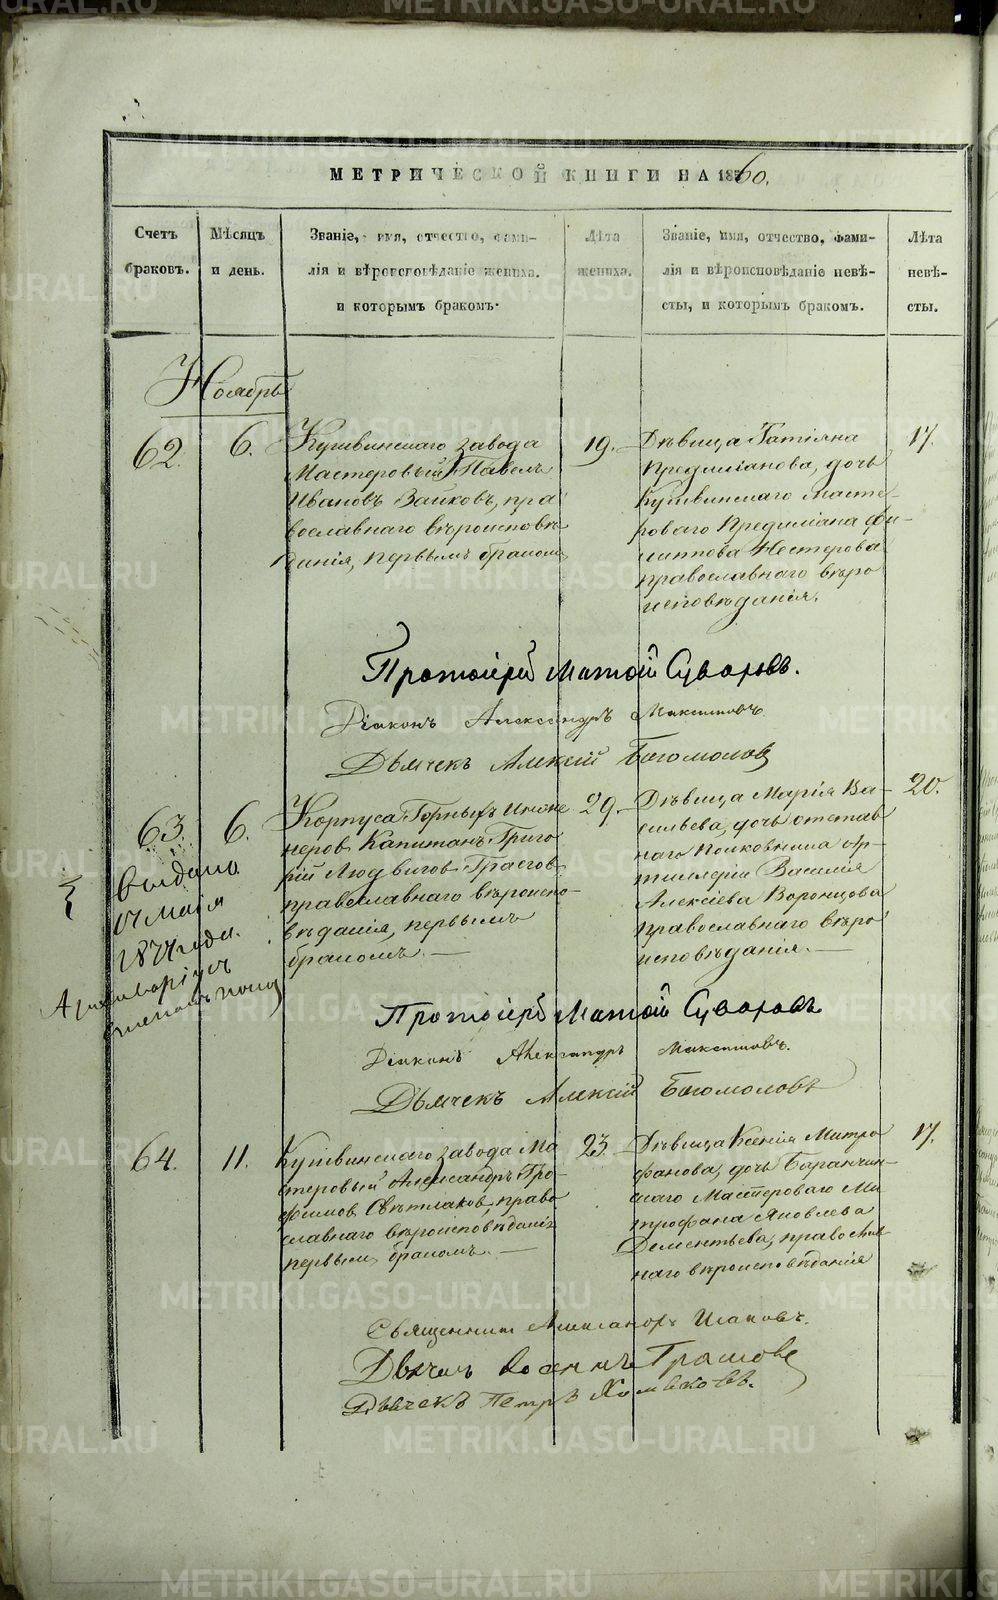 МЕТРИЧЕСКОЙ КНИГИ НА 1860.
Счетъ браковъ.
Мѣсяцъ и день.
Званіе, имя, отчество, фами-
лія и вѣроисповѣданіе жениха.
и которымъ бракомъ.
Лѣта жениха.
Званіе, имя, отчество, фами-
лія и вѣроисповѣданіе невѣ-
сты, и которымъ бракомъ.
Лѣта невѣ-
сты.
Ноябрь
62.
6.
Кушвинскаго завода
Мастеровый Павелъ
Ивановъ Зайковъ, пра
вославнаго вѣроисповѣ
данія, первымъ бракомъ
19.
Дѣвица Татіяна
дочь
Кушвинскаго Масте-
роваго Фи-
липпова Нестерова
православнаго вѣро
исповѣданія.
17.
Протоіерей Матѳій Суворовъ.
Діаконъ Александръ Максимовъ.
Дьячекъ Алексій Богомоловъ
63.
6.
Корпуса Горныхъ Инже
неровъ Капитанъ Григо
рій Людвиговъ
православнаго вѣроиспо-
вѣданія, первымъ
бракомъ. —
29.
Дѣвица Марія Ва-
сильева, дочь отстав
наго Полковника Ар-
тиллеріи Василія
Алексіева Воронцова
православнаго вѣро
исповѣданія. —
20.
выдано
17 маія
1871 года.
Протоіерей Матѳій Суворовъ
Діаконъ Александръ Максимовъ.
Дьячекъ Алексій Богомоловъ
64.
11.
Кушвинскаго завода Ма
стеровый Александръ Тро-
фимовъ Свѣтлаковъ, право
славнаго вѣроисповѣданія
первымъ бракомъ. —
23.
Дѣвица Ксенія Митро
фанова, дочь Баранчин-
скаго Мастероваго Ми
трофана Яковлева
Дементьева, православ
наго вѣроисповѣданія
17.
Священникъ Александръ Исаковъ.
Дьячекъ Петръ Хомяковъ.
METRIKI.GASO-URAL.RU